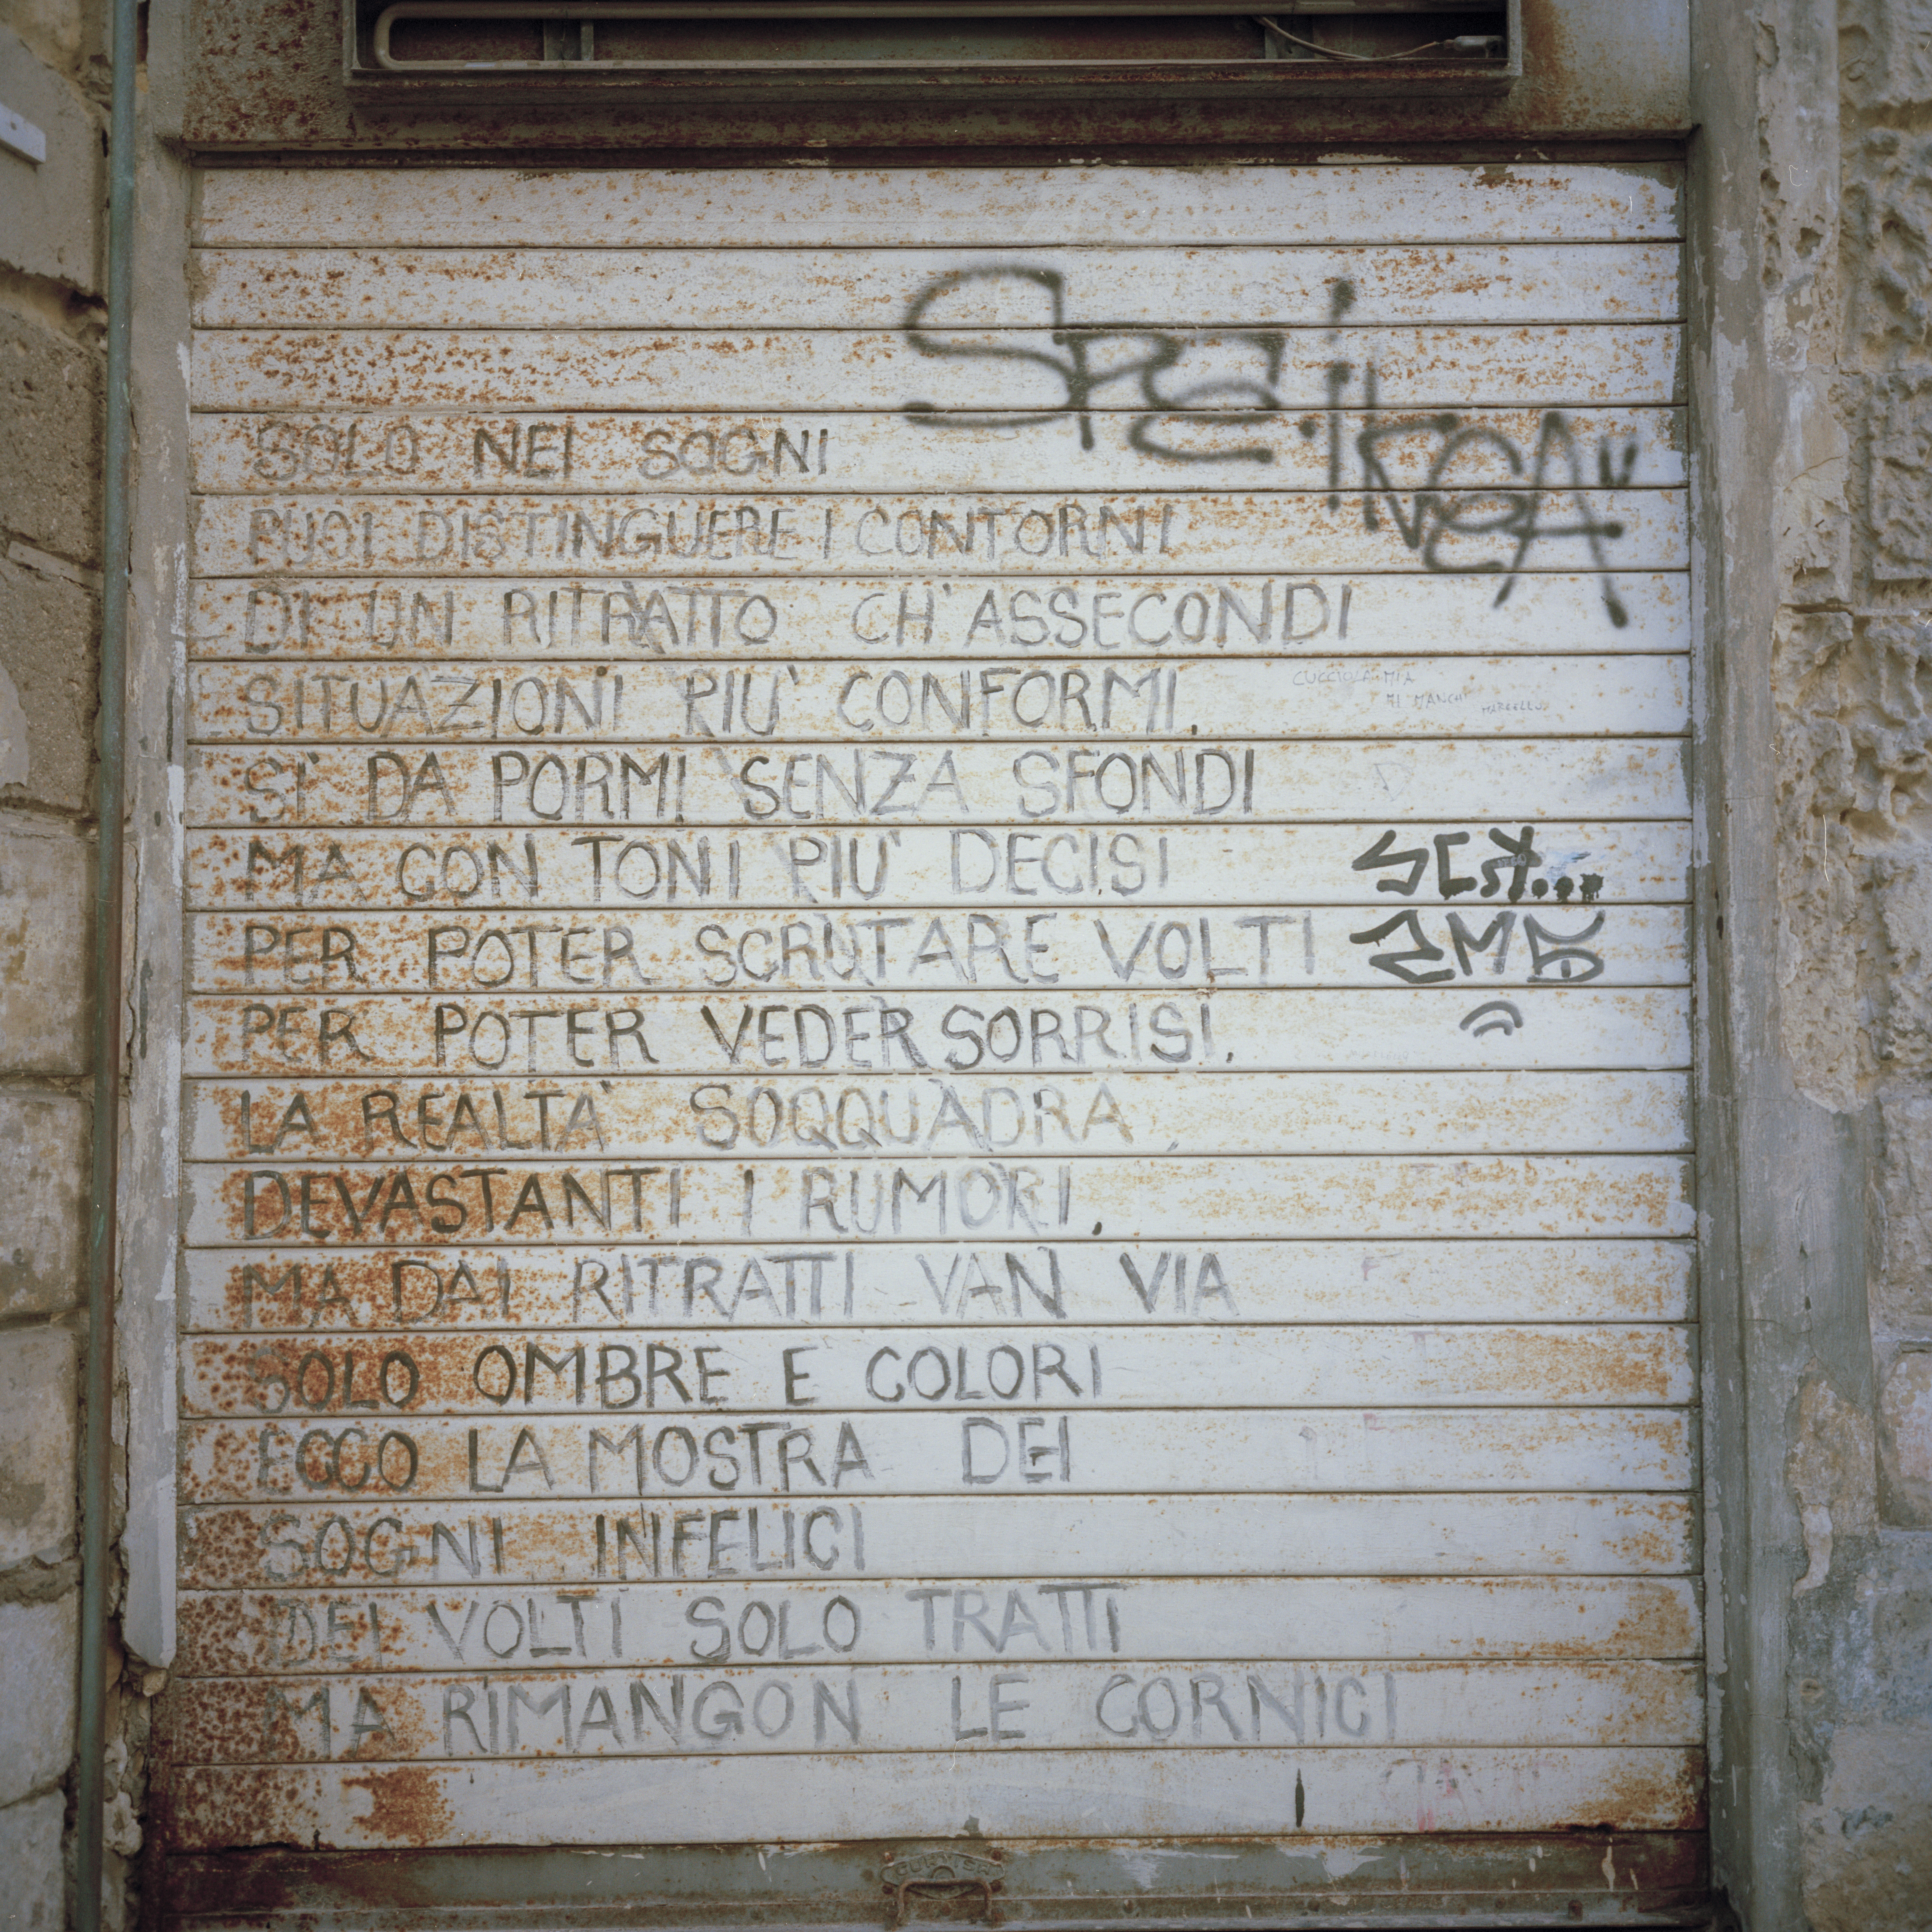 SOLO NEI SOGNI
PUOI DISTINGUERE I CONTORNI
DI UN RITRATTO CH'ASSECONDI
SITUAZIONI PIU' CONFORMI.
CUCCIOLA MIA
MI MANCHI
MARCELLO
SI' DA PORMI SENZA SFONDI
MA CON TONI PIU' DECISI
PER POTER SCRUTARE VOLTI
PER POTER VEDER SORRISI.
LA REALTA' SOQQUADRA,
DEVASTANTI I RUMORI,
MA DAI RITRATTI VAN VIA
SOLO OMBRE E COLORI
ECCO LA MOSTRA DEI
SOGNI INFELICI
DEI VOLTI SOLO TRATTI
MA RIMANGON LE CORNICI